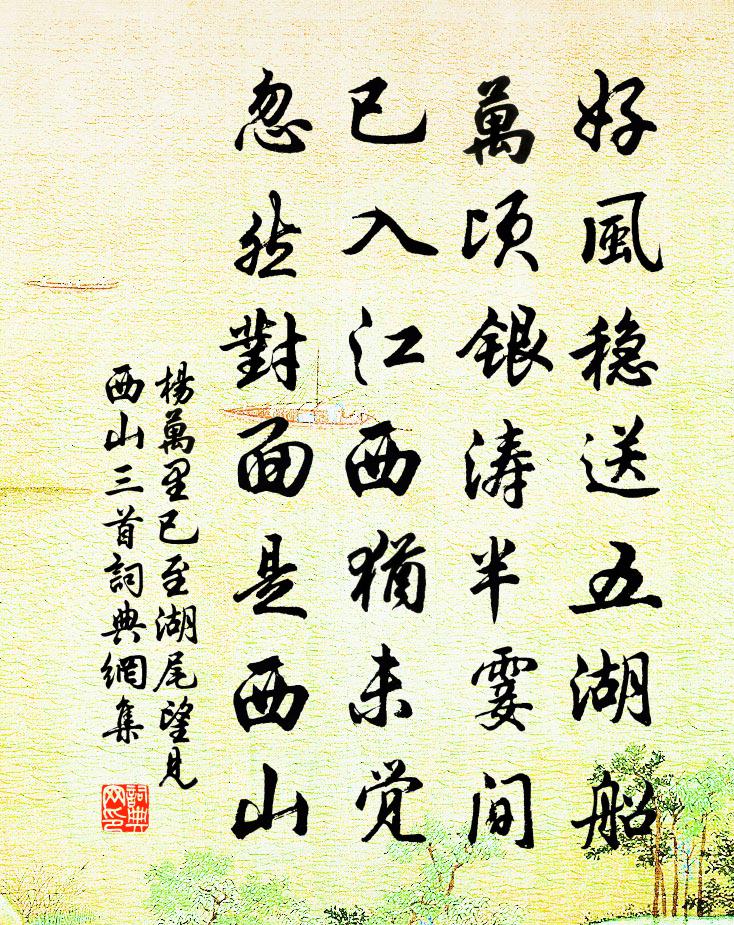 好風穏送五湖船
萬頃銀濤半霎間
已入江西猶未覚
忽然對面是西山
楊萬里已至湖尾望見
西山三首詞典網集
詞典
网印